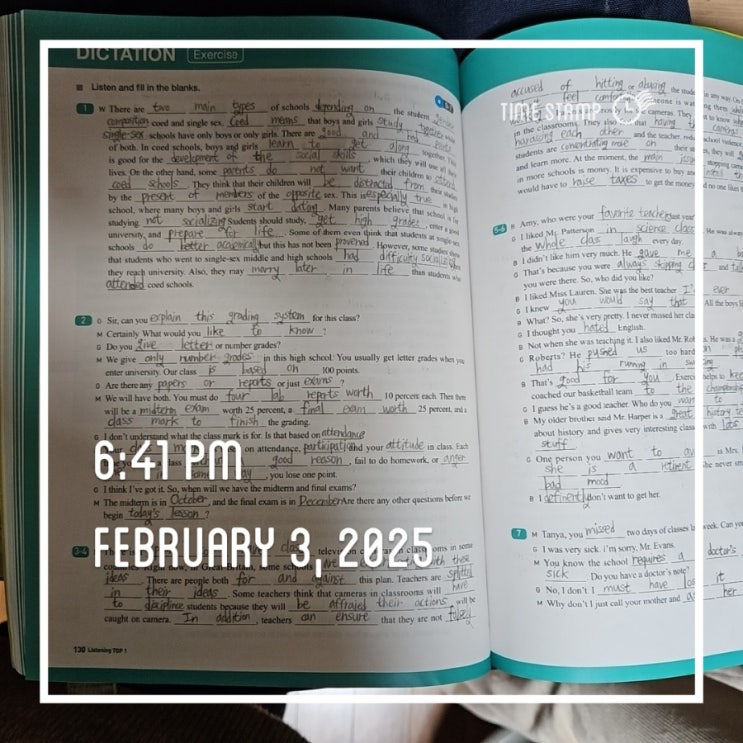 DICTATION Exercise
Listen and fill in the blanks.
1 W There are two main types of schools depending on the student
composition coed and single-sex. Coed means that boys and girls study together
single-sex schools have only boys or only girls. There are good and bad
of both. In coed schools, boys and girls learn to get along together. This
is good for the development of the social skills, which they will use all their
lives. On the other hand, some parents do not want their children to attend
coed schools. They think that their children will be distracted from their studies
by the present of members of the opposite sex. This is especially true in high
school, where many boys and girls start dating. Many parents believe that school is for
studying not socializing. Students should study, get high grades, enter a good
university, and prepare for life. Some of them even think that students at single-sex
schools do better academically but this has not been proved. However, some studies show
that students who went to single-sex middle and high schools had difficulty socializing
they reach university. Also, they may marry later in life than students who
attended coed schools.
2 G Sir, can you explain this grading system for this class?
M Certainly What would you like to know?
G Do you give letter or number grades?
M We give only number grades in this high school. You usually get letter grades when you
enter university. Our class is based on 100 points.
G Are there any papers or reports or just exams?
M We will have both. You must do four lab reports worth 10 percent each. Then there
will be a midterm exam worth 25 percent, a final exam worth 25 percent, and a
class mark to finish the grading.
G I don't understand what the class mark is for. Is that based on attendance
on attendance, participation and your attitude in class. Each
class good reason, fail to do homework, or anger
you lose one point.
G I think I've got it. So, when will we have the midterm and final exams?
M The midterm is in October, and the final exam is in December Are there any other questions before we
begin today's lesson?
6:41 PM
FEBRUARY 3, 2025
3-4 television cameras in classrooms in some
countries. Right now, in Great Britain, some schools with these
ideas. There are people both for and against this plan. Teachers are splitted
in their ideas. Some teachers think that cameras in classrooms will have
to discipline students because they will be affraied their actions will be
caught on camera. In addition, teachers can ensure that they are not falsely
130 Listening TOP 1
TIME STAMP
accused of hitting or abusing the students in any way. On
feel
in the classrooms. They also
harassing each other and the teacher.
students are concentrating more on their
and learn more. At the moment, the main
in more schools is money. It is expensive to buy
would have to raise taxes to get the money
5-6 B Amy, who were your favorite teachers last year?
G I liked Mr. Patterson in science class. He was always
the whole class laugh every day.
B I didn't like him very much. He gave me a
G That's because you were always skipping and
you were there. So, who did you like?
B I liked Miss Lauren. She was the best teacher I've ever
G I knew you would say that. All the boys
B What? So, she's very pretty. I never missed her
G I thought you hated English.
B Not when she was teaching it. I also liked Mr. He was a
G Roberts? He pushed us too hard
had his running in
B That's good for you. Exercise helps to keep
coached our basketball team to the championship
G I guess he's a good teacher. Who do you want to
B My older brother said Mr. Harper is a great history
about history and gives very interesting class with lots
stuff.
G One person you want to is Mrs.
she is a She never
bad mood
B I definitely don't want to get her.
7 M Tanya, you missed two days of classes last week. Can you
G I was very sick. I'm sorry, Mr. Evans.
M You know the school requires a doctor's
sick. Do you have a doctor's note?
G No, I don't. I must have lost it
M Why don't I just call your mother and her